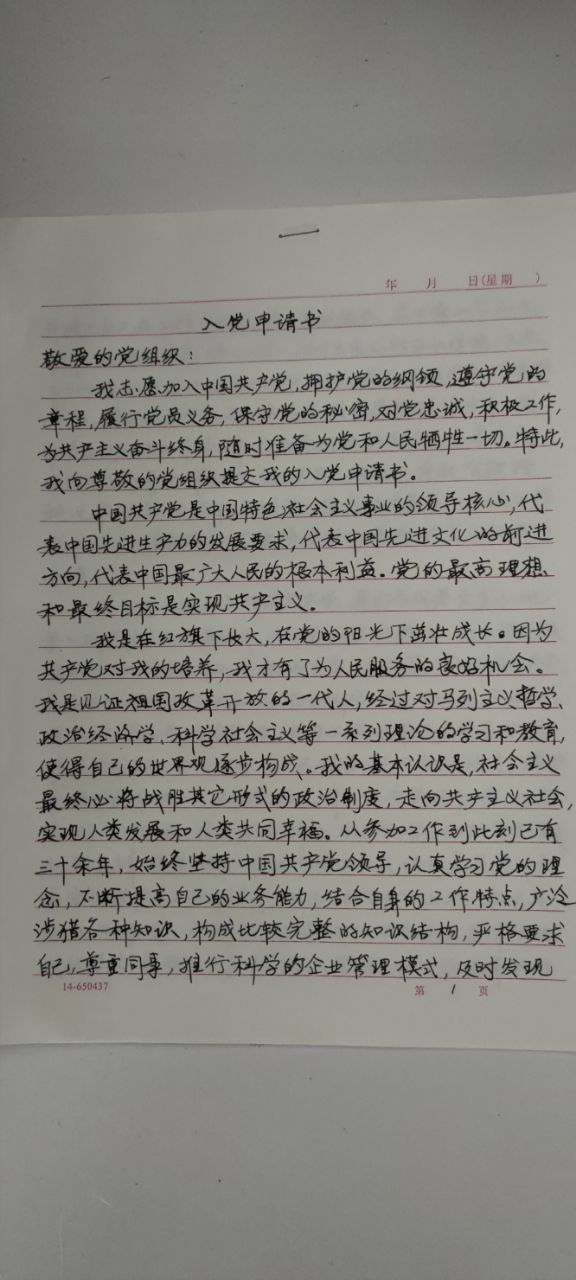 年 月 日(星期 )
入党申请书
敬爱的党组织：
我志愿加入中国共产党，拥护党的纲领，遵守党的
章程，履行党员义务，保守党的秘密，对党忠诚，积极工作，
为共产主义奋斗终身，随时准备为党和人民牺牲一切。特此，
我向尊敬的党组织提交我的入党申请书。
中国共产党是中国特色社会主义事业的领导核心，代
表中国先进生产力的发展要求，代表中国先进文化的前进
方向，代表中国最广大人民的根本利益。党的最高理想
和最终目标是实现共产主义。
我是在红旗下长大，在党的阳光下茁壮成长。因为
共产党对我的培养，我才有了为人民服务的良好机会。
我是见证祖国改革开放的一代人，经过对马列主义哲学、
政治经济学、科学社会主义等一系列理论的学习和教育，
使得自己的世界观逐步构成。我的基本认识是，社会主义
最终必将战胜其它形式的政治制度，走向共产主义社会，
实现人类发展和人类共同幸福。从参加工作到此刻已有
三十余年，始终坚持中国共产党领导，认真学习党的理
念，不断提高自己的业务能力，结合自身的工作特点，广泛
涉猎各种知识，构成比较完整的知识结构，严格要求
自己，尊重同事，推行科学的企业管理模式，及时发现
14-650437 第 1 页